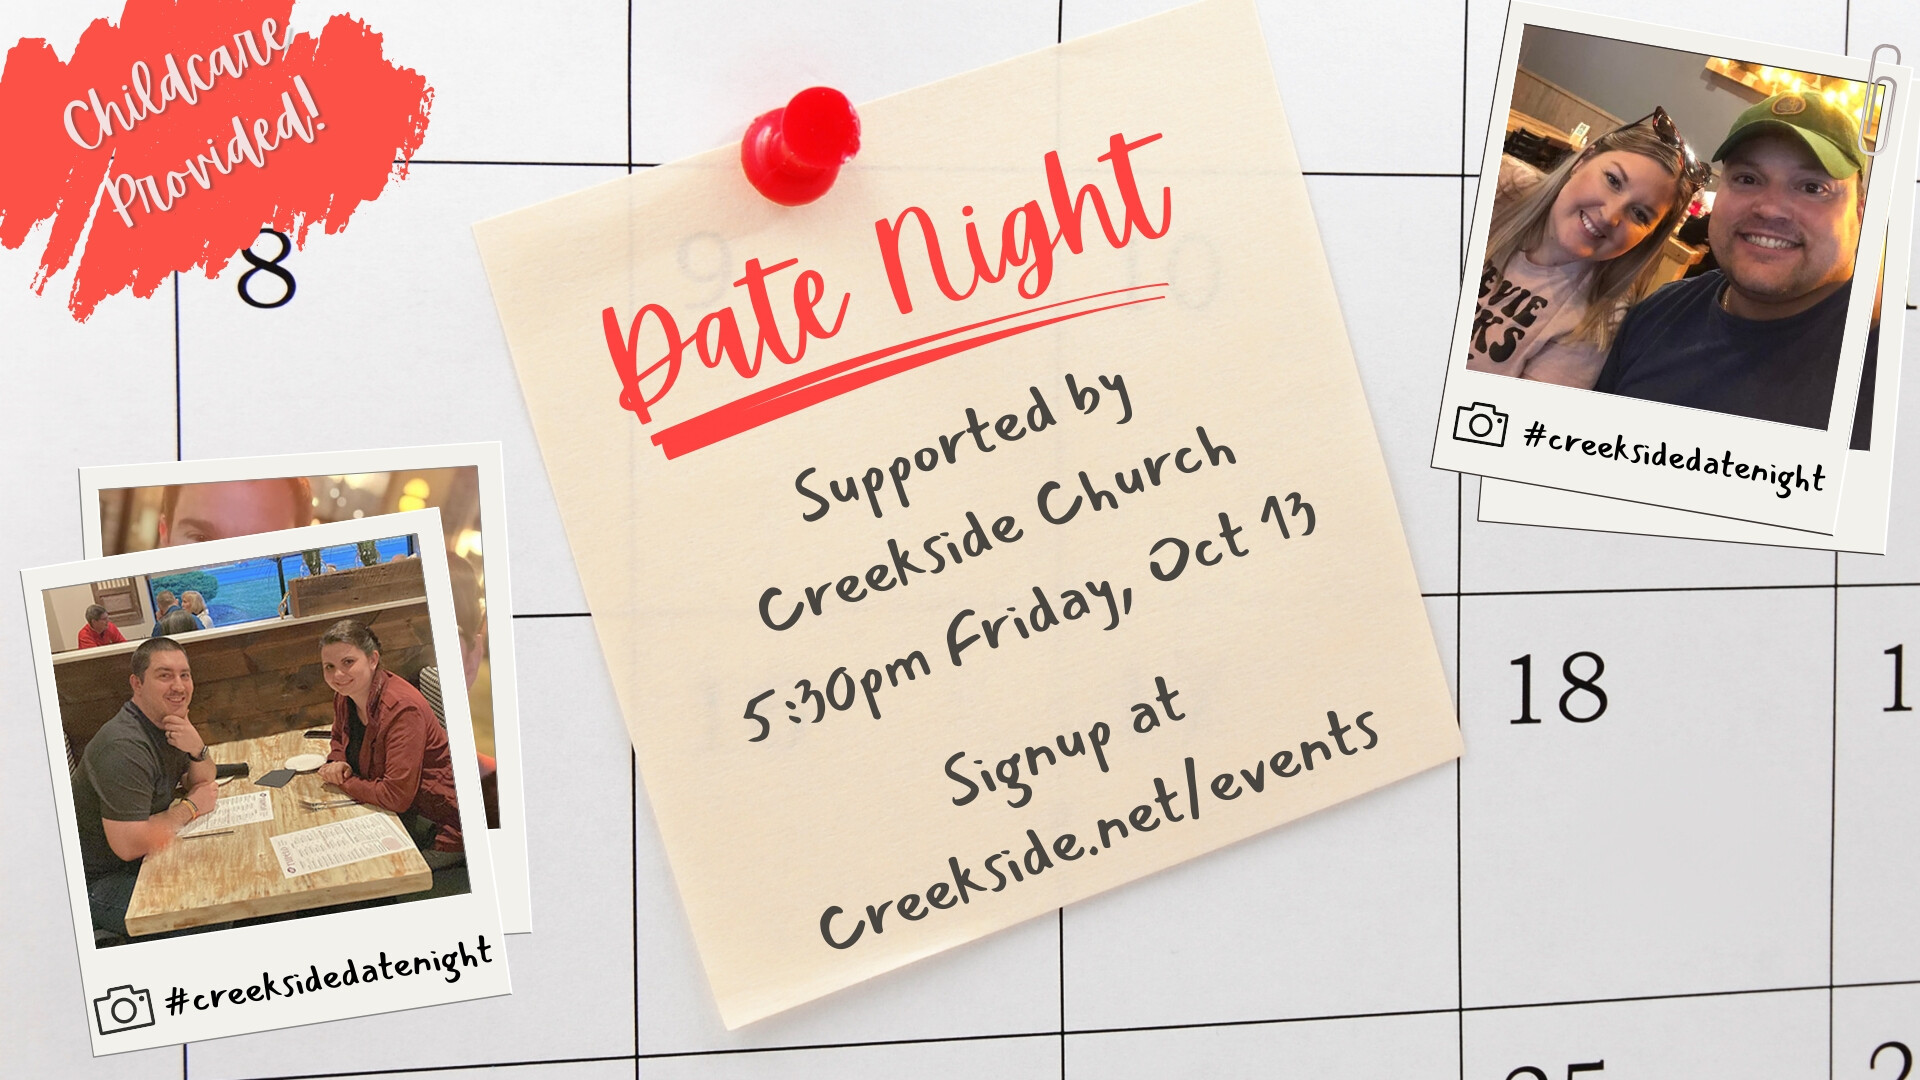 Childcare
Provided!
8
9
10
Date Night
Supported by
Creekside Church
5:30pm Friday, Oct 13
Signup at
Creekside.net/events
#creeksidedatenight
#creeksidedatenight
18
1
25
2